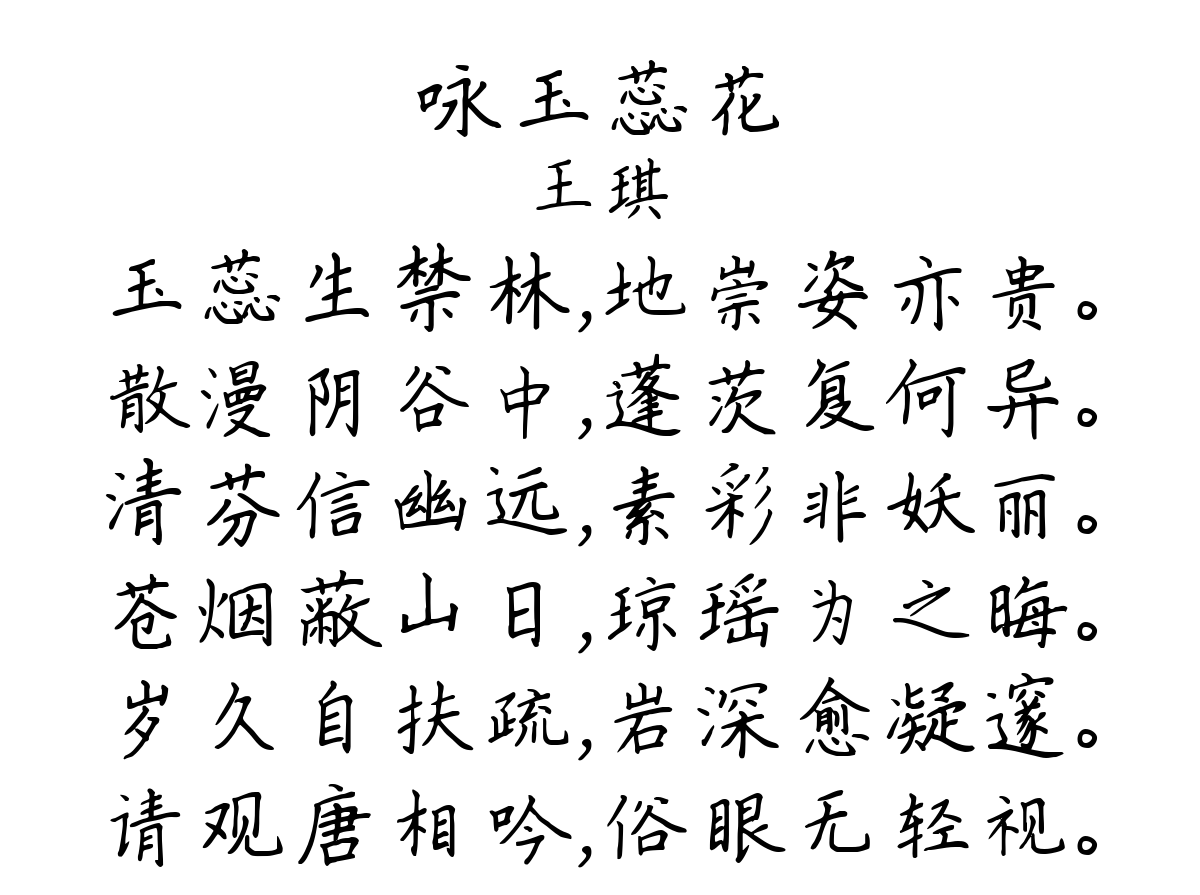 咏玉蕊花
王琪
玉蕊生禁林,地崇姿亦贵。
散漫阴谷中,蓬茨复何异。
清芬信幽远,素彩非妖丽。
苍烟蔽山日,琼瑶为之晦。
岁久自扶疏,岩深愈凝邃。
请观唐相吟,俗眼无轻视。